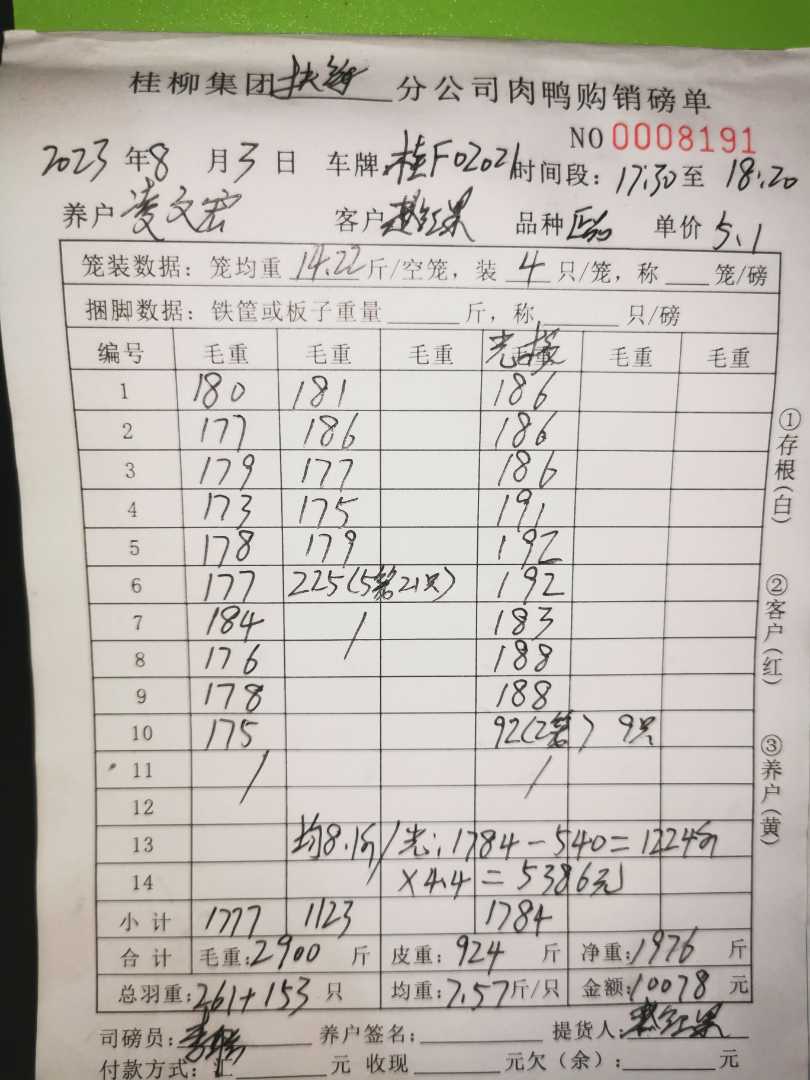 桂柳集团扶绥分公司肉鸭购销磅单
NO 0008191
2023年8月3日 车牌:桂F02021时间段:17:30至18:20
养户凌文宏 客户 品种 单价5.1
笼装数据:笼均重14.22斤/空笼,装4只/笼,称 笼/磅
捆脚数据:铁筐或板子重量 斤,称 只/磅
编号 毛重 毛重 毛重 光 毛重 毛重
1 180 181 186
2 177 186 186
3 179 177 186
4 173 175 191
5 178 179 192
6 177 225(5笼21只) 192
7 184 / 183
8 176 188
9 178 188
10 175 92(2笼) 9只
11 / /
12
13 均8.1斤/光:1784-540=1224斤
14 ×4.4=5386元
小计 1777 1123 1784
合计 毛重:2900斤 皮重:924斤 净重:1976斤
总羽重:261+153只 均重:7.57斤/只 金额:10078元
司磅员: 养户签名: 提货人:
付款方式:汇 元 收现 元欠(余): 元
①存根(白)
②客户(红)
③养户(黄)